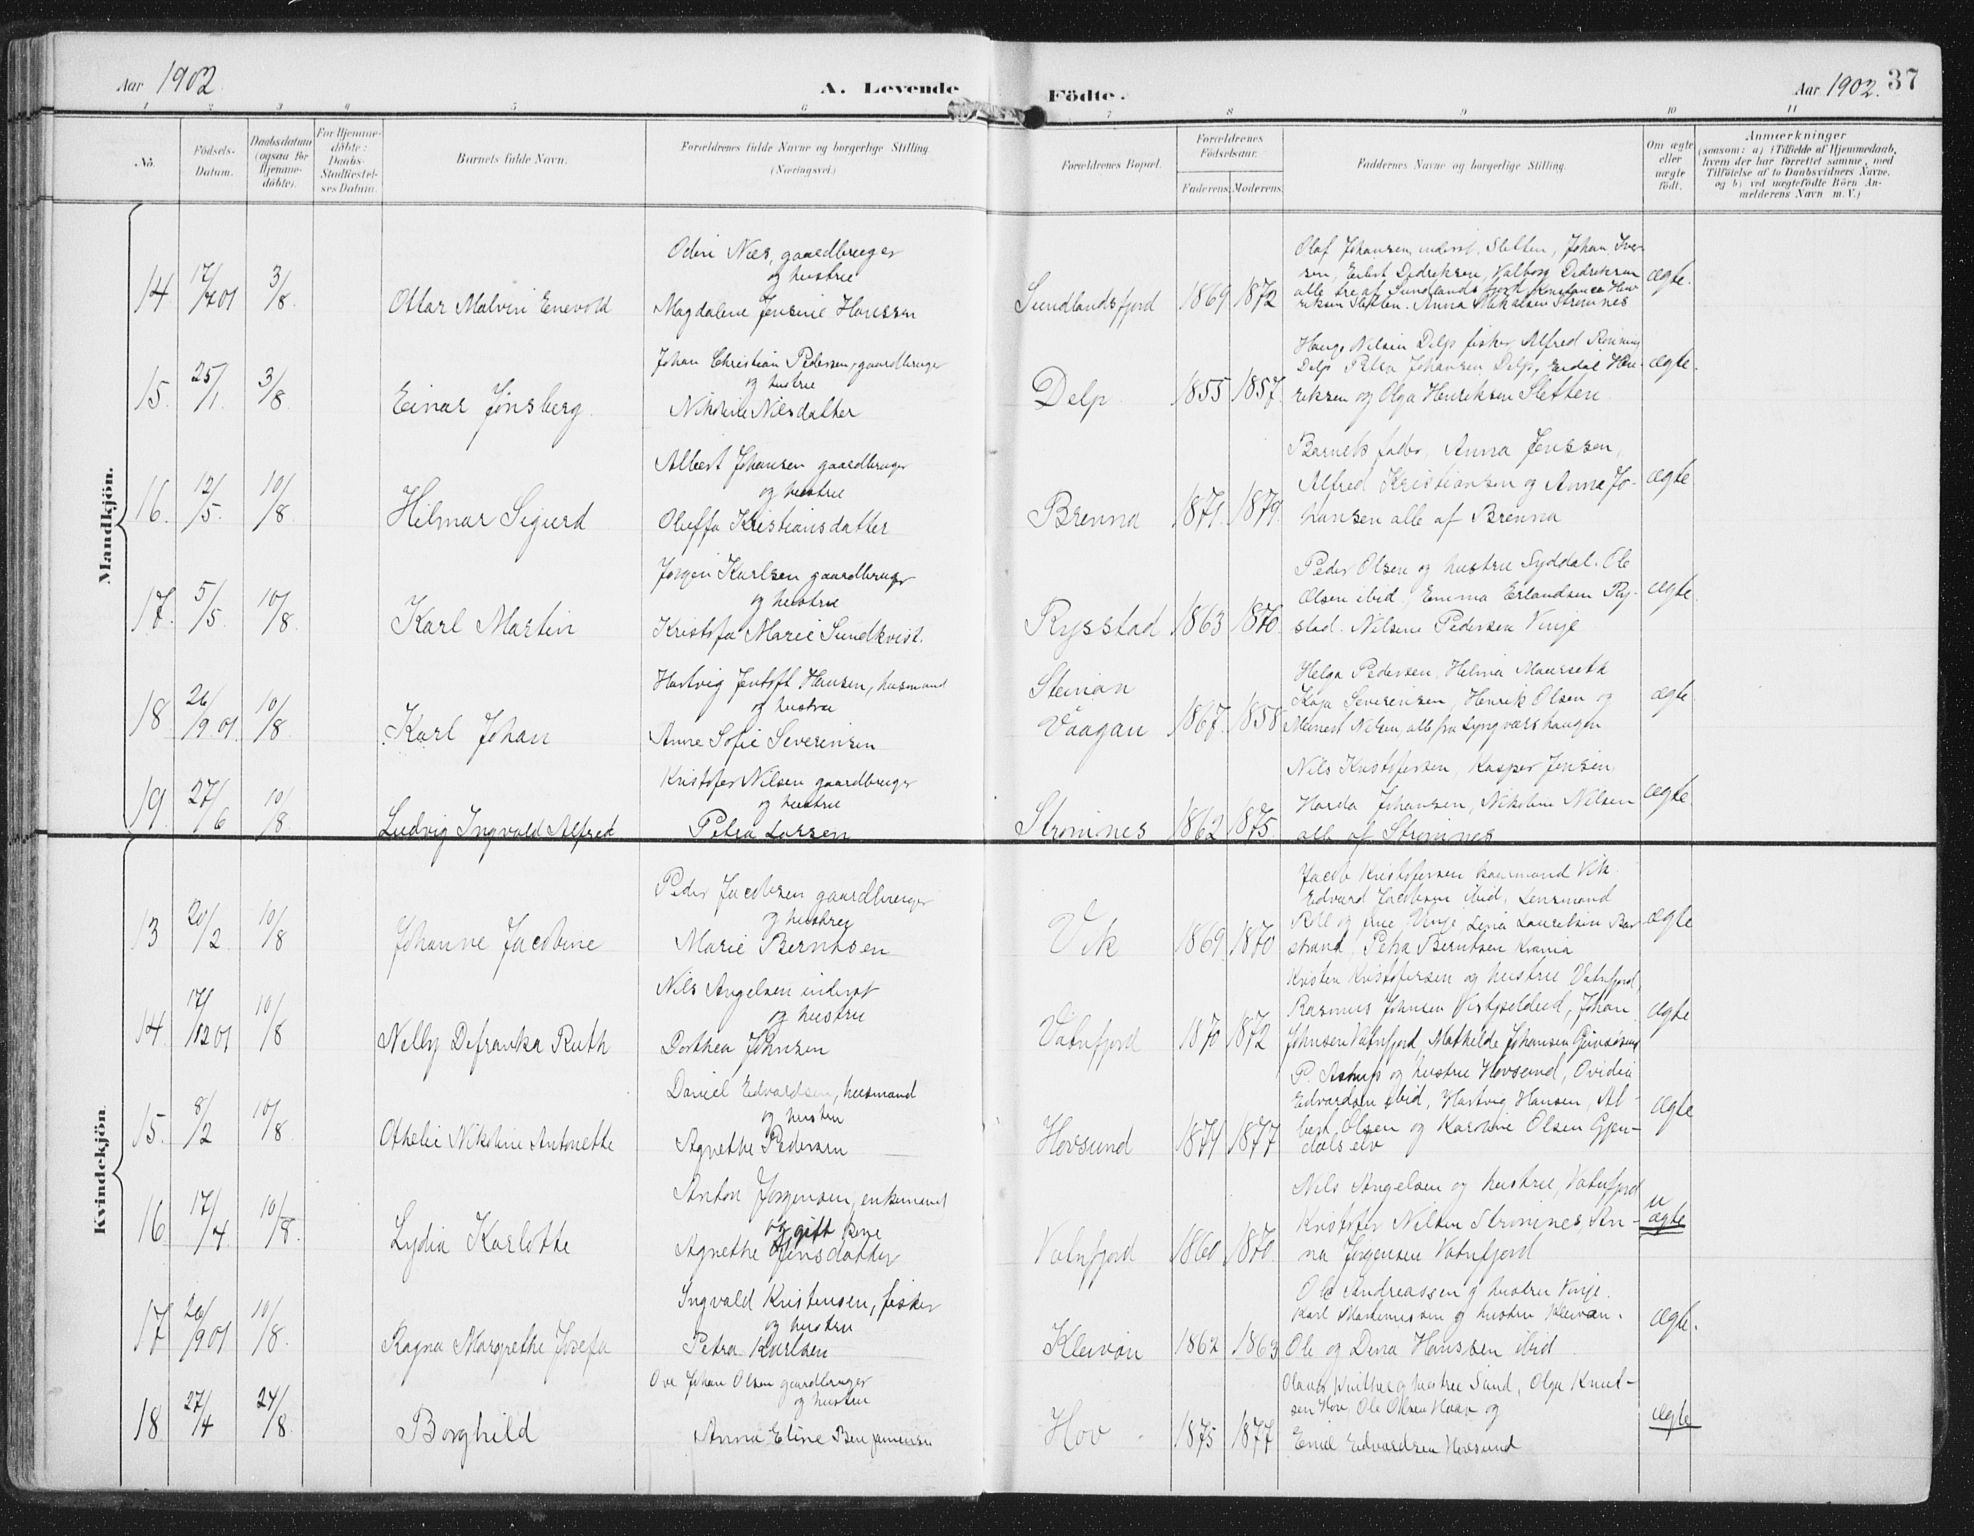 Aar 1902.
A. Levende
Födte.
Aar 1902. 37
1 2 3 4 5 6 7 8 9 10 11
No.
Födsels-
Datum.
Daabsdatum
(ogsaa for
Hjemme-
döbte).
For Hjemme-
döbte:
Daabs-
Stadfæstel-
ses Datum.
Barnets fulde Navn.
Forældrenes fulde Navne og borgerlige Stilling
(Næringsvei.)
Forældrenes Bopæl.
Forældrenes
Födselsaar.
Faderens. Moderens.
Faddernes Navne og borgerlige Stilling.
Om ægte
eller
uægte
födt.
Anmærkninger
(saasom: a) i Tilfælde af Hjemmedaab,
hvem der har forrettet samme, med
Tilföielse af to Daabsvidners Navne,
og b) ved uægtefödte Börn An-
melderens Navn m. V.)
Mandkjön.
14 17/4 01 3/8
Ottar Malvin Enevold
Odin Nils, gaardbruger
og hustru
Magdalene Jensine Hanssen
Sundlandsfjord 1869 1872
Olaf Johansen, inderst. Sletten, Johan Iver-
sen, Erlert Didriksen, Valborg Didriksen
alle tre af Sundlandsfjord Konstance Hen-
riksen Sletten. Anna Mikalsen Strømnes
ægte.
15. 25/1. 3/8
Einar Jønsberg.
Johan Christian Pedersen, gaardbruger
og hustru
Nikoline Nilsdatter
Delp. 1855 1857.
Hauge Nilsen Delp fisker Alfred
Delp Petra Johansen Delp, Erdal Hen-
riksen og Olga Henriksen Sletten.
ægte.
16. 12/5. 10/8
Hilmar Sigurd
Albert Johansen gaardbruger
og hustru
Oluffa Kristiansdatter
Brenna 1871. 1879.
Barnets fader, Anna Jenssen,
Alfred Kristiansen og Anna Jo-
hansen alle af Brenna
ægte
17. 5/5. 10/8
Karl Martin
Jørgen Karlsen gaardbruger
og hustru
Kristofa Marie Sundkvist.
Rysstad 1863 1870.
Peder Olsen og hustru Syddal. Ole
Olsen ibid, Emma Erlandsen Ry-
stad. Nilsine Pedersen Vinje
ægte.
18 26/9 01. 10/8
Karl Johan
Hartvig Jentoft Hansen, husmand
og hustru
Anne Sofie Severinsen
Steinan
Vaagan 1867. 1858
Helga Pedersen, Helma Maurseth
Kaja Severinsen, Henrik Olsen og
Meinert Nilsen, alle fra Lyngværshaugen
ægte
19. 27/6 10/8
Ludvig Ingvald Alfred
Kristofer Nilsen gaardbruger
og hustru
Petra Larsen
Strømnes 1862 1875.
Nils Kristofersen, Kasper Jensen,
Harda Johansen, Nikoline Nilsen
alle af Strømnes
ægte
Kvindekjön.
13 20/2. 10/8
Johanne Jacobine
Peder Jacobsen gaardbruger
og hustru
Marie Berntsen
Vik 1869. 1870
Jacob Kristofersen baarmand Vik.
Edvard Jacobsen ibid, Lensmand
Roll og frue, Vinje, Lena Lauritsen Bar-
strand, Petra Berntsen
ægte
14. 17/12 01 10/8
Nelly Defranka Ruth
Nils Angelsen inderst
og hustru
Dorthea Johnsen
Vatnfjord 1870 1872
Kristen Kristofersen og hustru Vatnfjord,
Rasmus Johnsen Vestfjeldeid, Johan
Johnsen Vatnfjord, Mathilde Johansen Gimsøsund
ægte
15. 8/2 10/8.
Othelie Nikoline Antonette
Daniel Edvardsen, husmand
og hustru
Agnethe Pedersen
Hovsund 1871 1877
P. Astrup og hustru Hovsund, Ovidia
Edvardsen ibid, Hartvig Hansen, Al-
bert Olsen og Karoline Olsen Gjen-
dals elv
ægte
16 17/4. 10/8.
Lydia Karlotte
Anton Jørgensen, enkemand
og gift
Agnethe Jensdatter
Vatnfjord 1860 1870.
Nils Angelsen og hustru, Vatnfjord
Kristofer Nilsen Strømnes An-
na Jørgensen Vatnfjord
u
ægte
17 26/9 01 10/8.
Ragna Margrethe Josefa
Ingvald Kristensen, fisker
og hustru
Petra Karlsen
Kleivan 1862 1863
Ole Andreassen og hustru Vinje.
Karl Martinussen og hustru Kleivan.
Ole og Dina Hanssen ibid.
ægte.
18. 27/4 24/8
Borghild
Ove Johan Olsen gaardbruger
og hustru
Anna Eline Benjaminsen
Hov. 1875 1877
og hustru Sund, Olga Knut-
sen Hov, Ole Olsen Hov og
Emil Edvardsen Hovsund
ægte